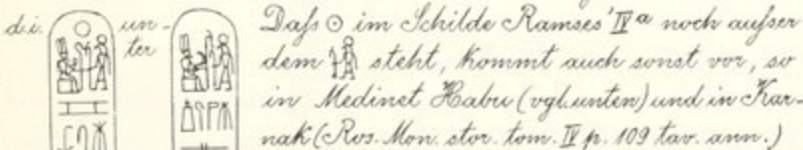 d.i. un-
ter
Daſs ☉ im Schilde Ramses' IVª noch auſser
dem steht, kommt auch sonst vor, so
in Medinet Habu (vgl. unten) und in Kar-
nak (Ros. Mon. stor. tom. IV p. 109 tav. ann.)